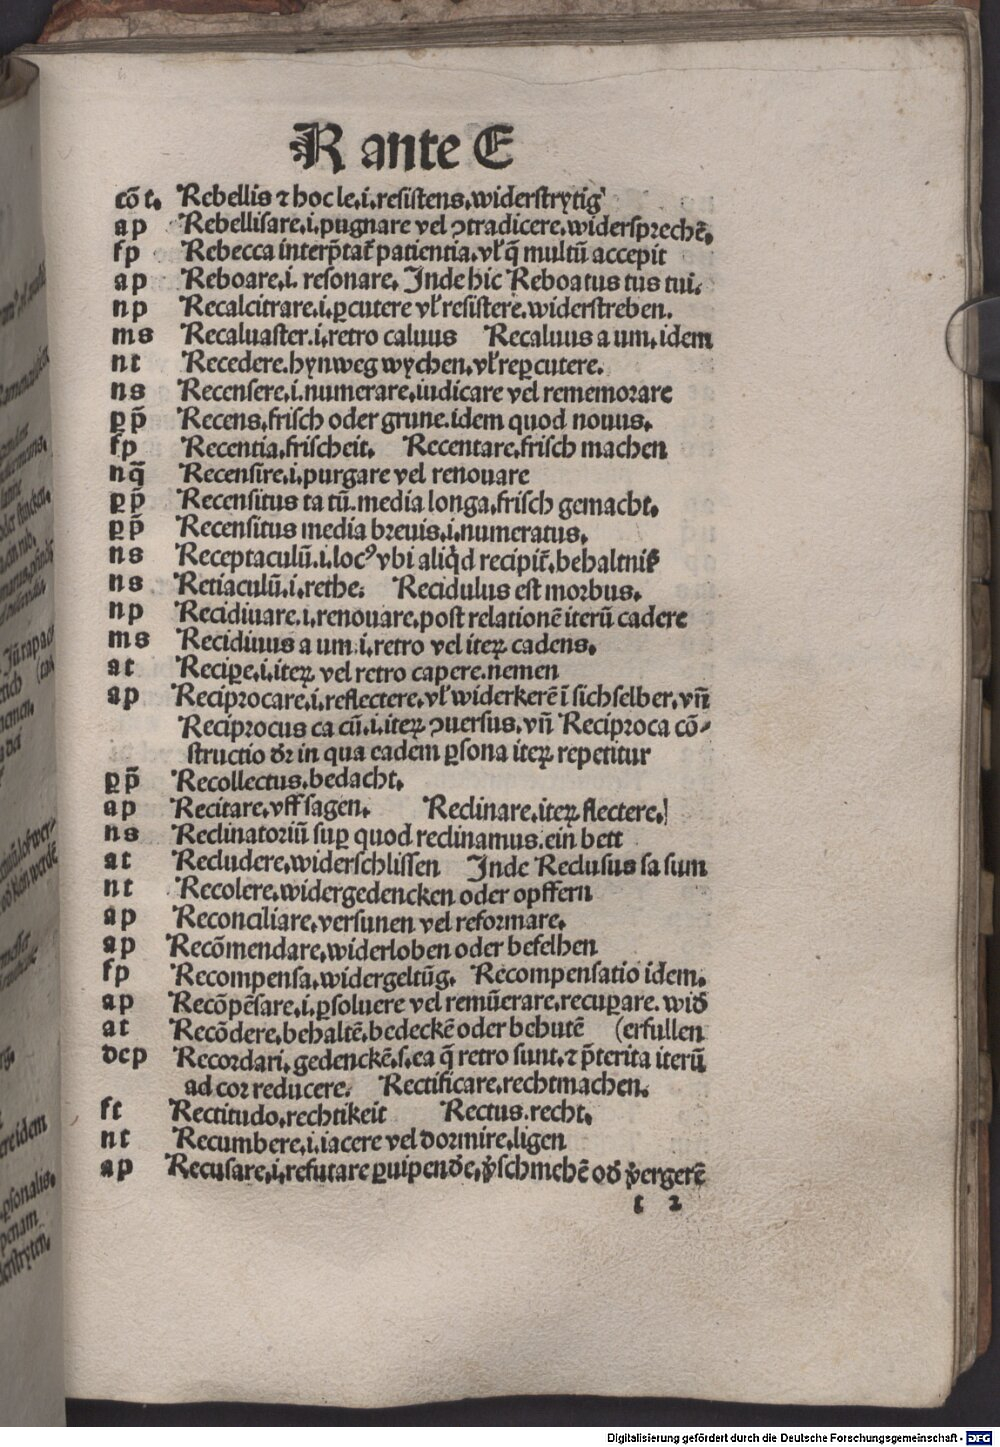 R ante E
cō t. Rebellis ⁊ hoc le.i.resistens.widerstrytig
ap Rebellisare.i.pugnare vel ↄtradicere.widersprechē.
fp Rebecca interp̄tat̄ patientia.vl̓ q̄ multū accepit
ap Reboare.i. resonare. Inde hic Reboatus tus tui.
np Recalcitrare.i.ꝑcutere vl̓ resistere.widerstreben.
ms Recaluaster.i.retro caluus Recaluus a um.idem
nt Recedere.hynweg wychen.vl̓ reꝑcutere.
ns Recensere.i.numerare.iudicare vel rememorare
ꝑp̄ Recens.frisch oder grune.idem quod nouus.
fp Recentia.frischeit. Recentare.frisch machen
nq̄ Recensire.i.purgare vel renouare
ꝑp̄ Recensitus ta tū.media longa.frisch gemacht.
ꝑp̄ Recensitus media breuis.i.numeratus.
ns Receptaculū.i.locꝰ vbi aliqd recipit̄.behaltniß
ns Retiaculū.i.rethe. Recidulus est morbus.
np Recidiuare.i.renouare.post relationē iterū cadere
ms Recidiuus a um.i.retro vel iteꝝ cadens.
at Reciꝑe.i.iteꝝ vel retro capere.nemen
ap Reciprocare.i.reflectere.vl̓ widerkerē ī sich selber.vn̄
Reciprocus ca cū.i.iteꝝ ↄuersus.vn̄ Reciproca cō-
structio dr in qua eadem ꝑsona iteꝝ repetitur
ꝑp̄ Recollectus.bedacht.
ap Recitare.vff sagen. Reclinare.iteꝝ flectere.
ns Reclinatoriū suꝑ quod reclinamus.ein bett
at Recludere.widerschlissen Inde Reclusus sa sum
nt Recolere.widergedencken oder opffern
ap Reconciliare.versunen vel reformare.
ap Recōmendare.widerloben oder befelhen
fp Recompensa.widergeltūg. Recompensatio idem.
ap Recōpēsare.i.ꝑsoluere vel remūerare.recuꝑare. wid̓
at Recōdere.behaltē.bedeckē oder behutē (erfullen
dep Recordari.gedenckē.s.ea q̄ retro sunt.⁊ p̄terita iterū
ad cor reducere. Rectificare.rechtmachen.
ft Rectitudo.rechtikeit Rectus.recht.
nt Recumbere.i.iacere vel dormire.ligen
ap Recusare.i.refutare ꝑuipend̓e.v̓schmehē od̓ v̓ergerē
t 2
Digitalisierung gefördert durch die Deutsche Forschungsgemeinschaft - DFG